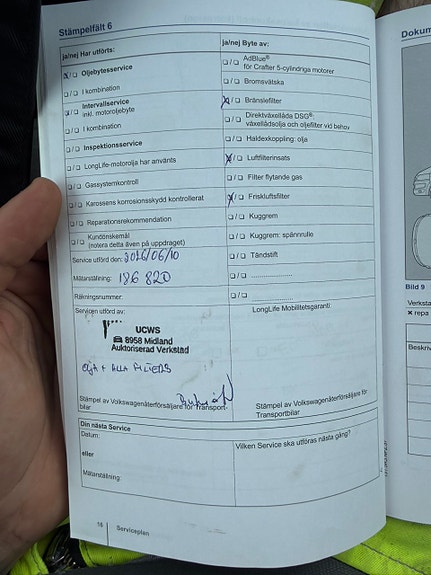 Stämpelfält 6
ja/nej Har utförts:
Oljebytesservice
I kombination
Intervallservice
inkl. motoroljebyte
I kombination
Inspektionsservice
LongLife-motorolja har använts
Gassystemkontroll
Karossens korrosionsskydd kontrollerat
Reparationsrekommendation
Kundönskemål
(notera detta även på uppdraget)
Service utförd den: 2016/06/10
Mätarställning: 186 820
Räkningsnummer:
Servicen utförd av:
UCWS
8958 Midland
Auktoriserad Verkstad
Olja + ALLA FILTERS
Stämpel av Volkswagenåterförsäljare för Transport-
bilar
ja/nej Byte av:
AdBlue®
för Crafter 5-cylindriga motorer
Bromsvätska
Bränslefilter
Direktväxellåda DSG®:
växellådsolja och oljefilter vid behov
Haldexkoppling: olja
Luftfilterinsats
Filter flytande gas
Friskluftsfilter
Kuggrem
Kuggrem: spännrulle
Tändstift
LongLife Mobilitetsgaranti:
Stämpel av Volkswagenåterförsäljare för
Transportbilar
Din nästa Service
Datum:
eller
Mätarställning:
Vilken Service ska utföras nästa gång?
18 Serviceplan
Dokum
Bild 9
Verksta
× repa
Beskriv